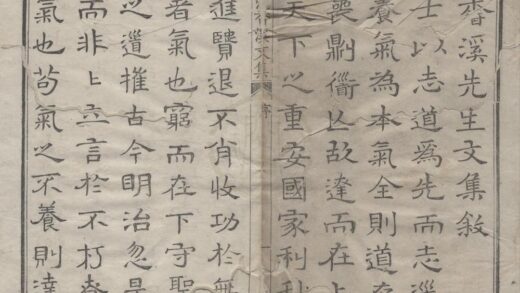 香溪先生文集敘
士以志道爲先而志
養氣為本氣全則道存
喪則衟亾故達而在上
天下之重安國家利
文集 序 一
進賢退不肖收功於無
者氣也窮而在下守聖
之道摧古今明治忽是
而非非立言於不朽
氣也苟氣之不養則達